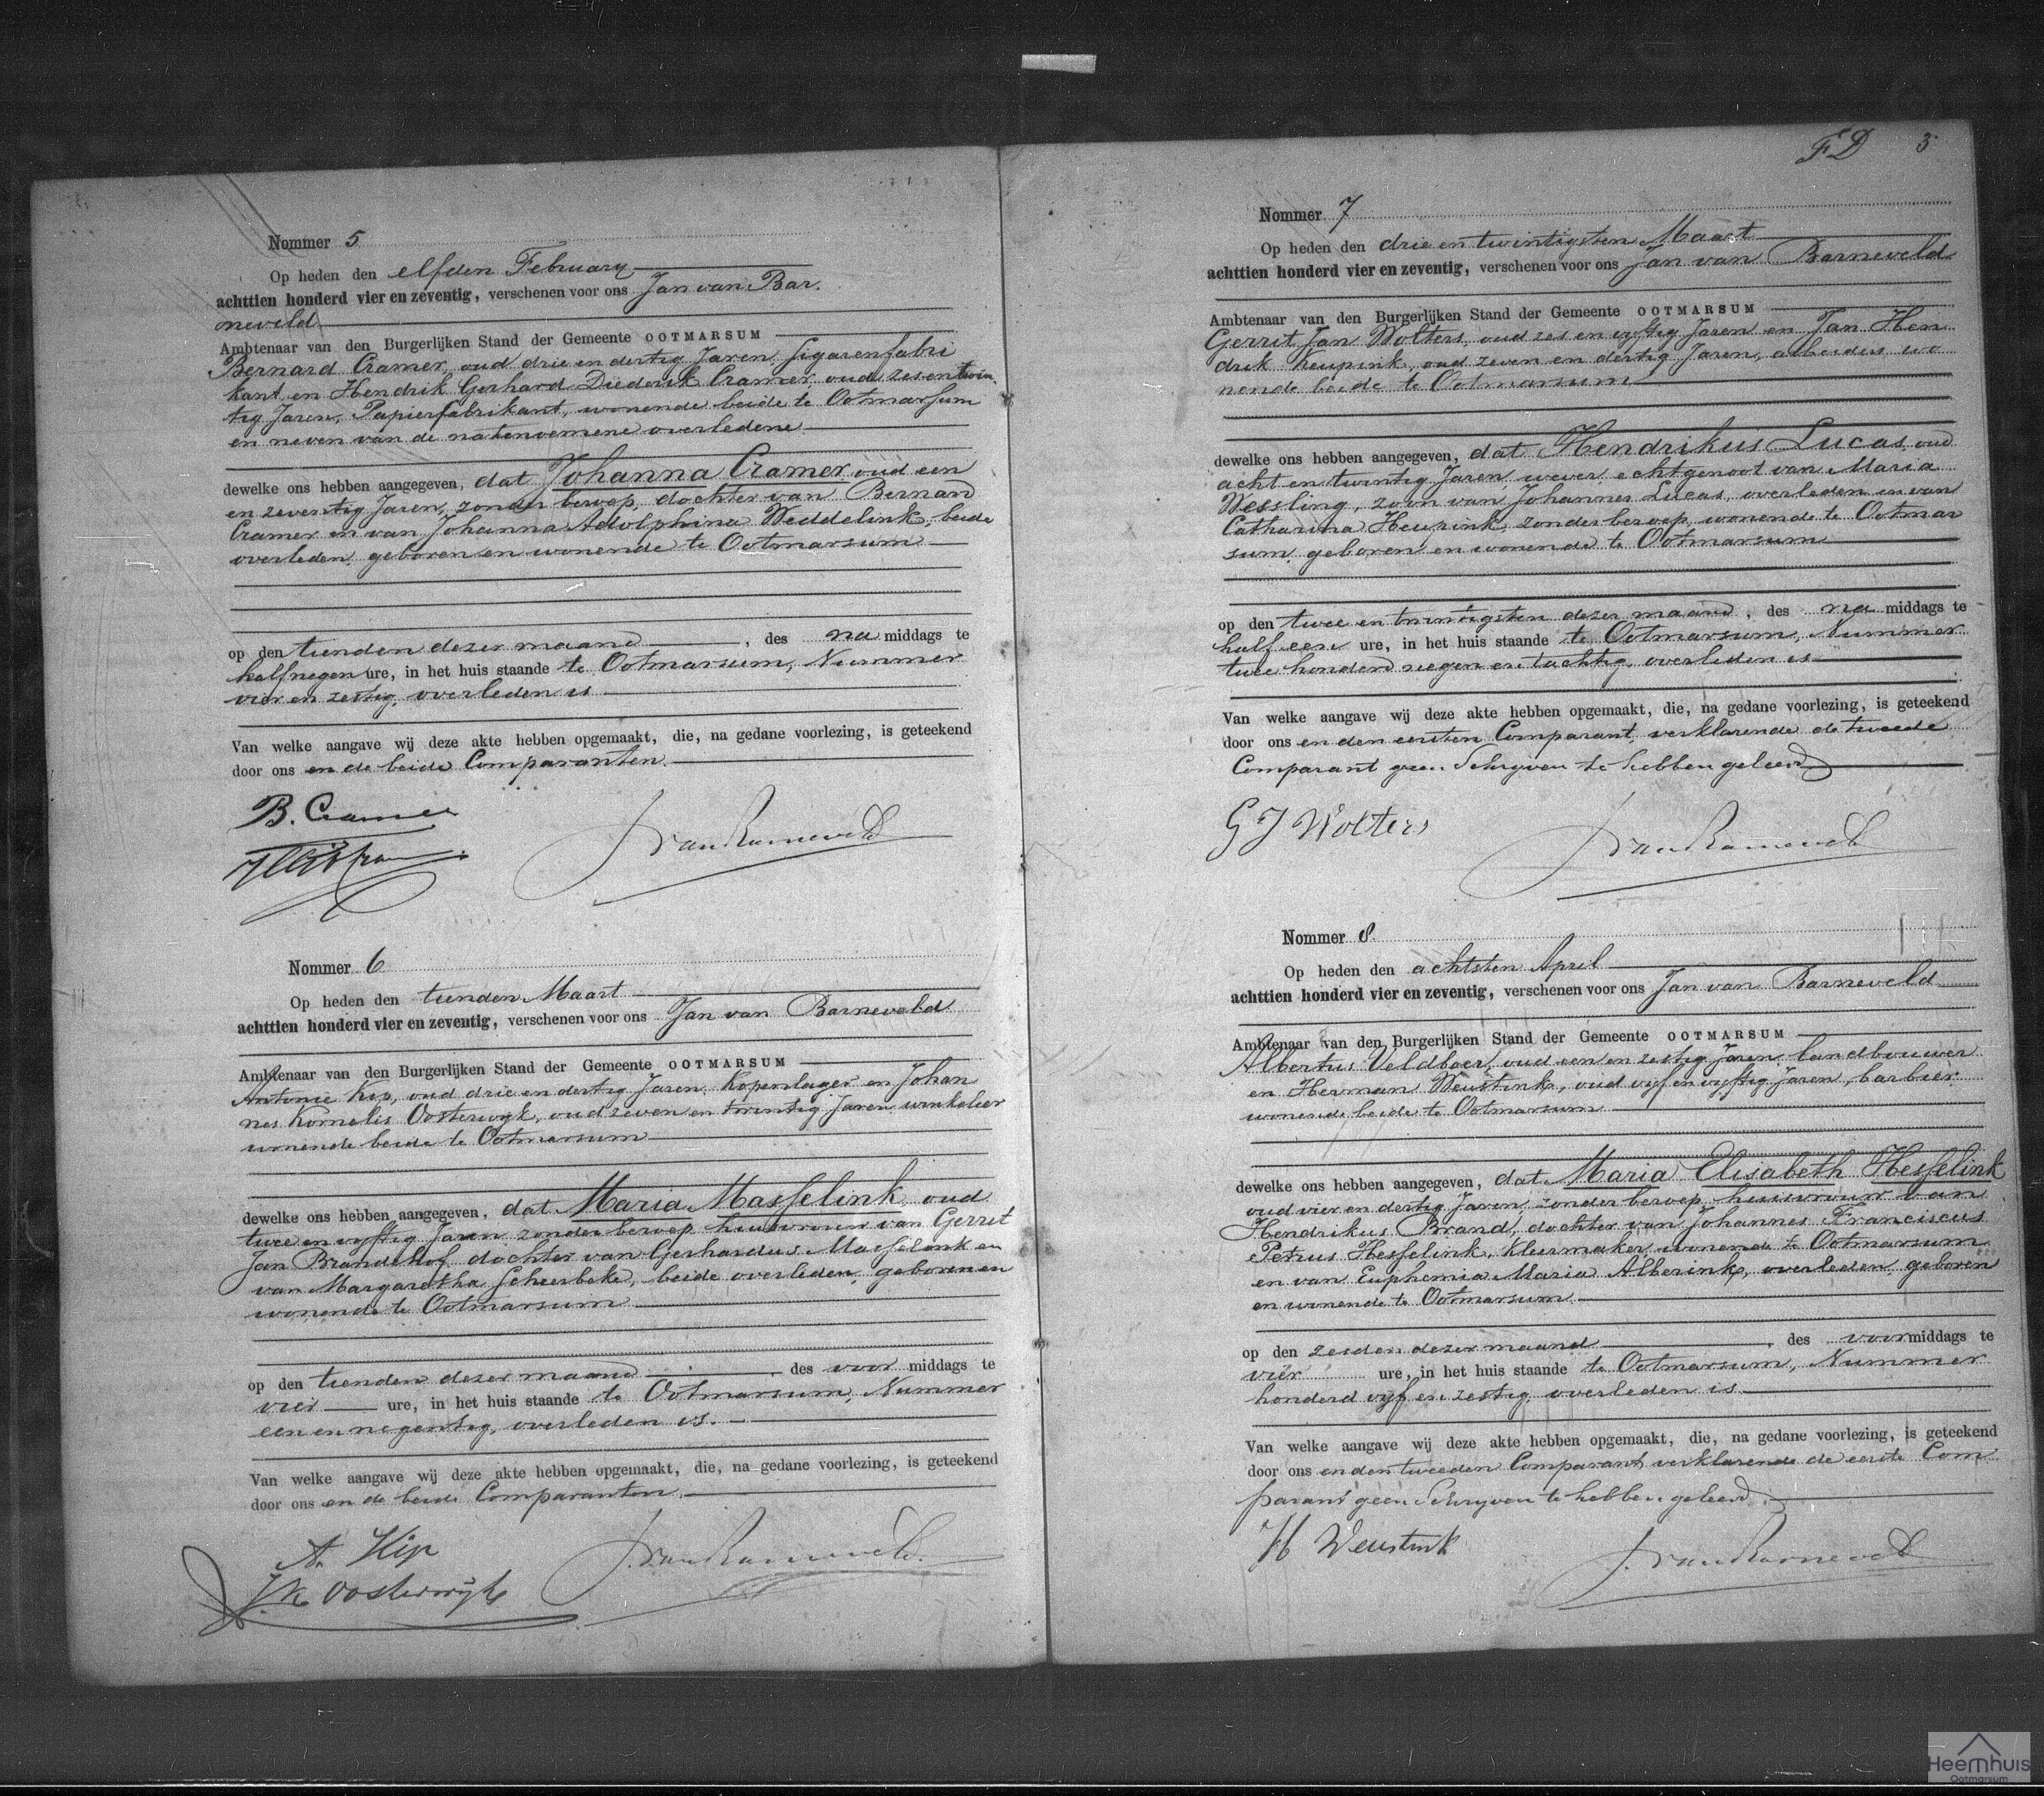 Nommer 5
Op heden den elfden February
achttien honderd vier en zeventig, verschenen voor ons Jan van Bar-
neveld
Ambtenaar van den Burgerlijken Stand der Gemeente OOTMARSUM
Bernard Cramer, oud drie en dertig Jaren, sigarenfabri
kant en Hendrik Gerhard Diederik Cramer, oud zes en twin-
tig Jaren, Papierfabrikant, wonende beide te Ootmarsum
en neven van de natenoemene overledene
dewelke ons hebben aangegeven, dat Johanna Cramer, oud een
en zeventig Jaren, zonder beroep, dochter van Bernard
Cramer en van Johanna Adolphina Weddelink, beide
overleden, geboren en wonende te Ootmarsum
op den tienden dezer maand, des na middags te
half negen ure, in het huis staande te Ootmarsum, Nummer
vier en zestig, overleden is
Van welke aangave wij deze akte hebben opgemaakt, die, na gedane voorlezing, is geteekend
door ons en de beide Comparanten.
B. Cramer
J van Barneveld
Nommer 6
Op heden den tienden Maart
achttien honderd vier en zeventig, verschenen voor ons Jan van Barneveld
Ambtenaar van den Burgerlijken Stand der Gemeente OOTMARSUM
Antonie Kip, oud drie en dertig Jaren, Koperslager en Johan
nes Kornelis Oosterwyk, oud zeven en twintig Jaren, winkelier
wonende beide te Ootmarsum
dewelke ons hebben aangegeven, dat Maria Masselink, oud
twee en vyftig Jaren, zonder beroep, huisvrouw van Gerrit
Jan Brandehof, dochter van Gerhardus Masselink en
van Margaretha Scheerbeke, beide overleden, geboren en
wonende te Ootmarsum
op den tienden dezer maand, des voor middags te
vier ure, in het huis staande te Ootmarsum, Nummer
een en negentig, overleden is.
Van welke aangave wij deze akte hebben opgemaakt, die, na gedane voorlezing, is geteekend
door ons en de beide Comparanten.
A. Kip
J. van Barneveld.
J.K. Oosterwijk
FD 5
Nommer 7
Op heden den drie en twintigsten Maart
achttien honderd vier en zeventig, verschenen voor ons Jan van Barneveld
Ambtenaar van den Burgerlijken Stand der Gemeente OOTMARSUM
Gerrit Jan Wolters, oud zes en vyftig Jaren en Jan Hen
drik Heupink, oud zeven en dertig Jaren, arbeiders, wo
nende beide te Ootmarsum
dewelke ons hebben aangegeven, dat Hendrikus Lucas, oud
acht en twintig Jaren, wever, echtgenoot van Maria
Wessling, zoon van Johannes Lucas, overleden en van
Catharina Heupink, zonder beroep, wonende te Ootmar
sum, geboren en wonende te Ootmarsum
op den twee en twintigsten dezer maand, des na middags te
half een ure, in het huis staande te Ootmarsum, Nummer
twee honderd negen en tachtig, overleden is
Van welke aangave wij deze akte hebben opgemaakt, die, na gedane voorlezing, is geteekend
door ons en den eersten Comparant, verklarende de tweede
Comparant geen Schryven te hebben geleerd
G J Wolters
J van Barneveld
Nommer 8.
Op heden den achtsten April
achttien honderd vier en zeventig, verschenen voor ons Jan van Barneveld
Ambtenaar van den Burgerlijken Stand der Gemeente OOTMARSUM
Albertus Veldboer, oud een en zestig Jaren, landbouwer
en Herman Weustink, oud vyf en vyftig Jaren, barbier
wonende beide te Ootmarsum
dewelke ons hebben aangegeven, dat Maria Elisabeth Hesselink
oud vier en dertig Jaren, zonder beroep, huisvrouw van
Hendrikus Brand, dochter van Johannes Franciscus
Petrus Hesselink, Kleermaker, wonende te Ootmarsum
en van Euphemia Maria Alberink, overleden, geboren
en wonende te Ootmarsum
op den zesden dezer maand, des voormiddags te
vier ure, in het huis staande te Ootmarsum, Nummer
honderd vyf en zestig, overleden is
Van welke aangave wij deze akte hebben opgemaakt, die, na gedane voorlezing, is geteekend
door ons en den tweeden Comparant, verklarende de eerste Com-
parant geen Schryven te hebben geleerd.
H Weustink
J. van Barneveld
Heemhuis
Ootmarsum